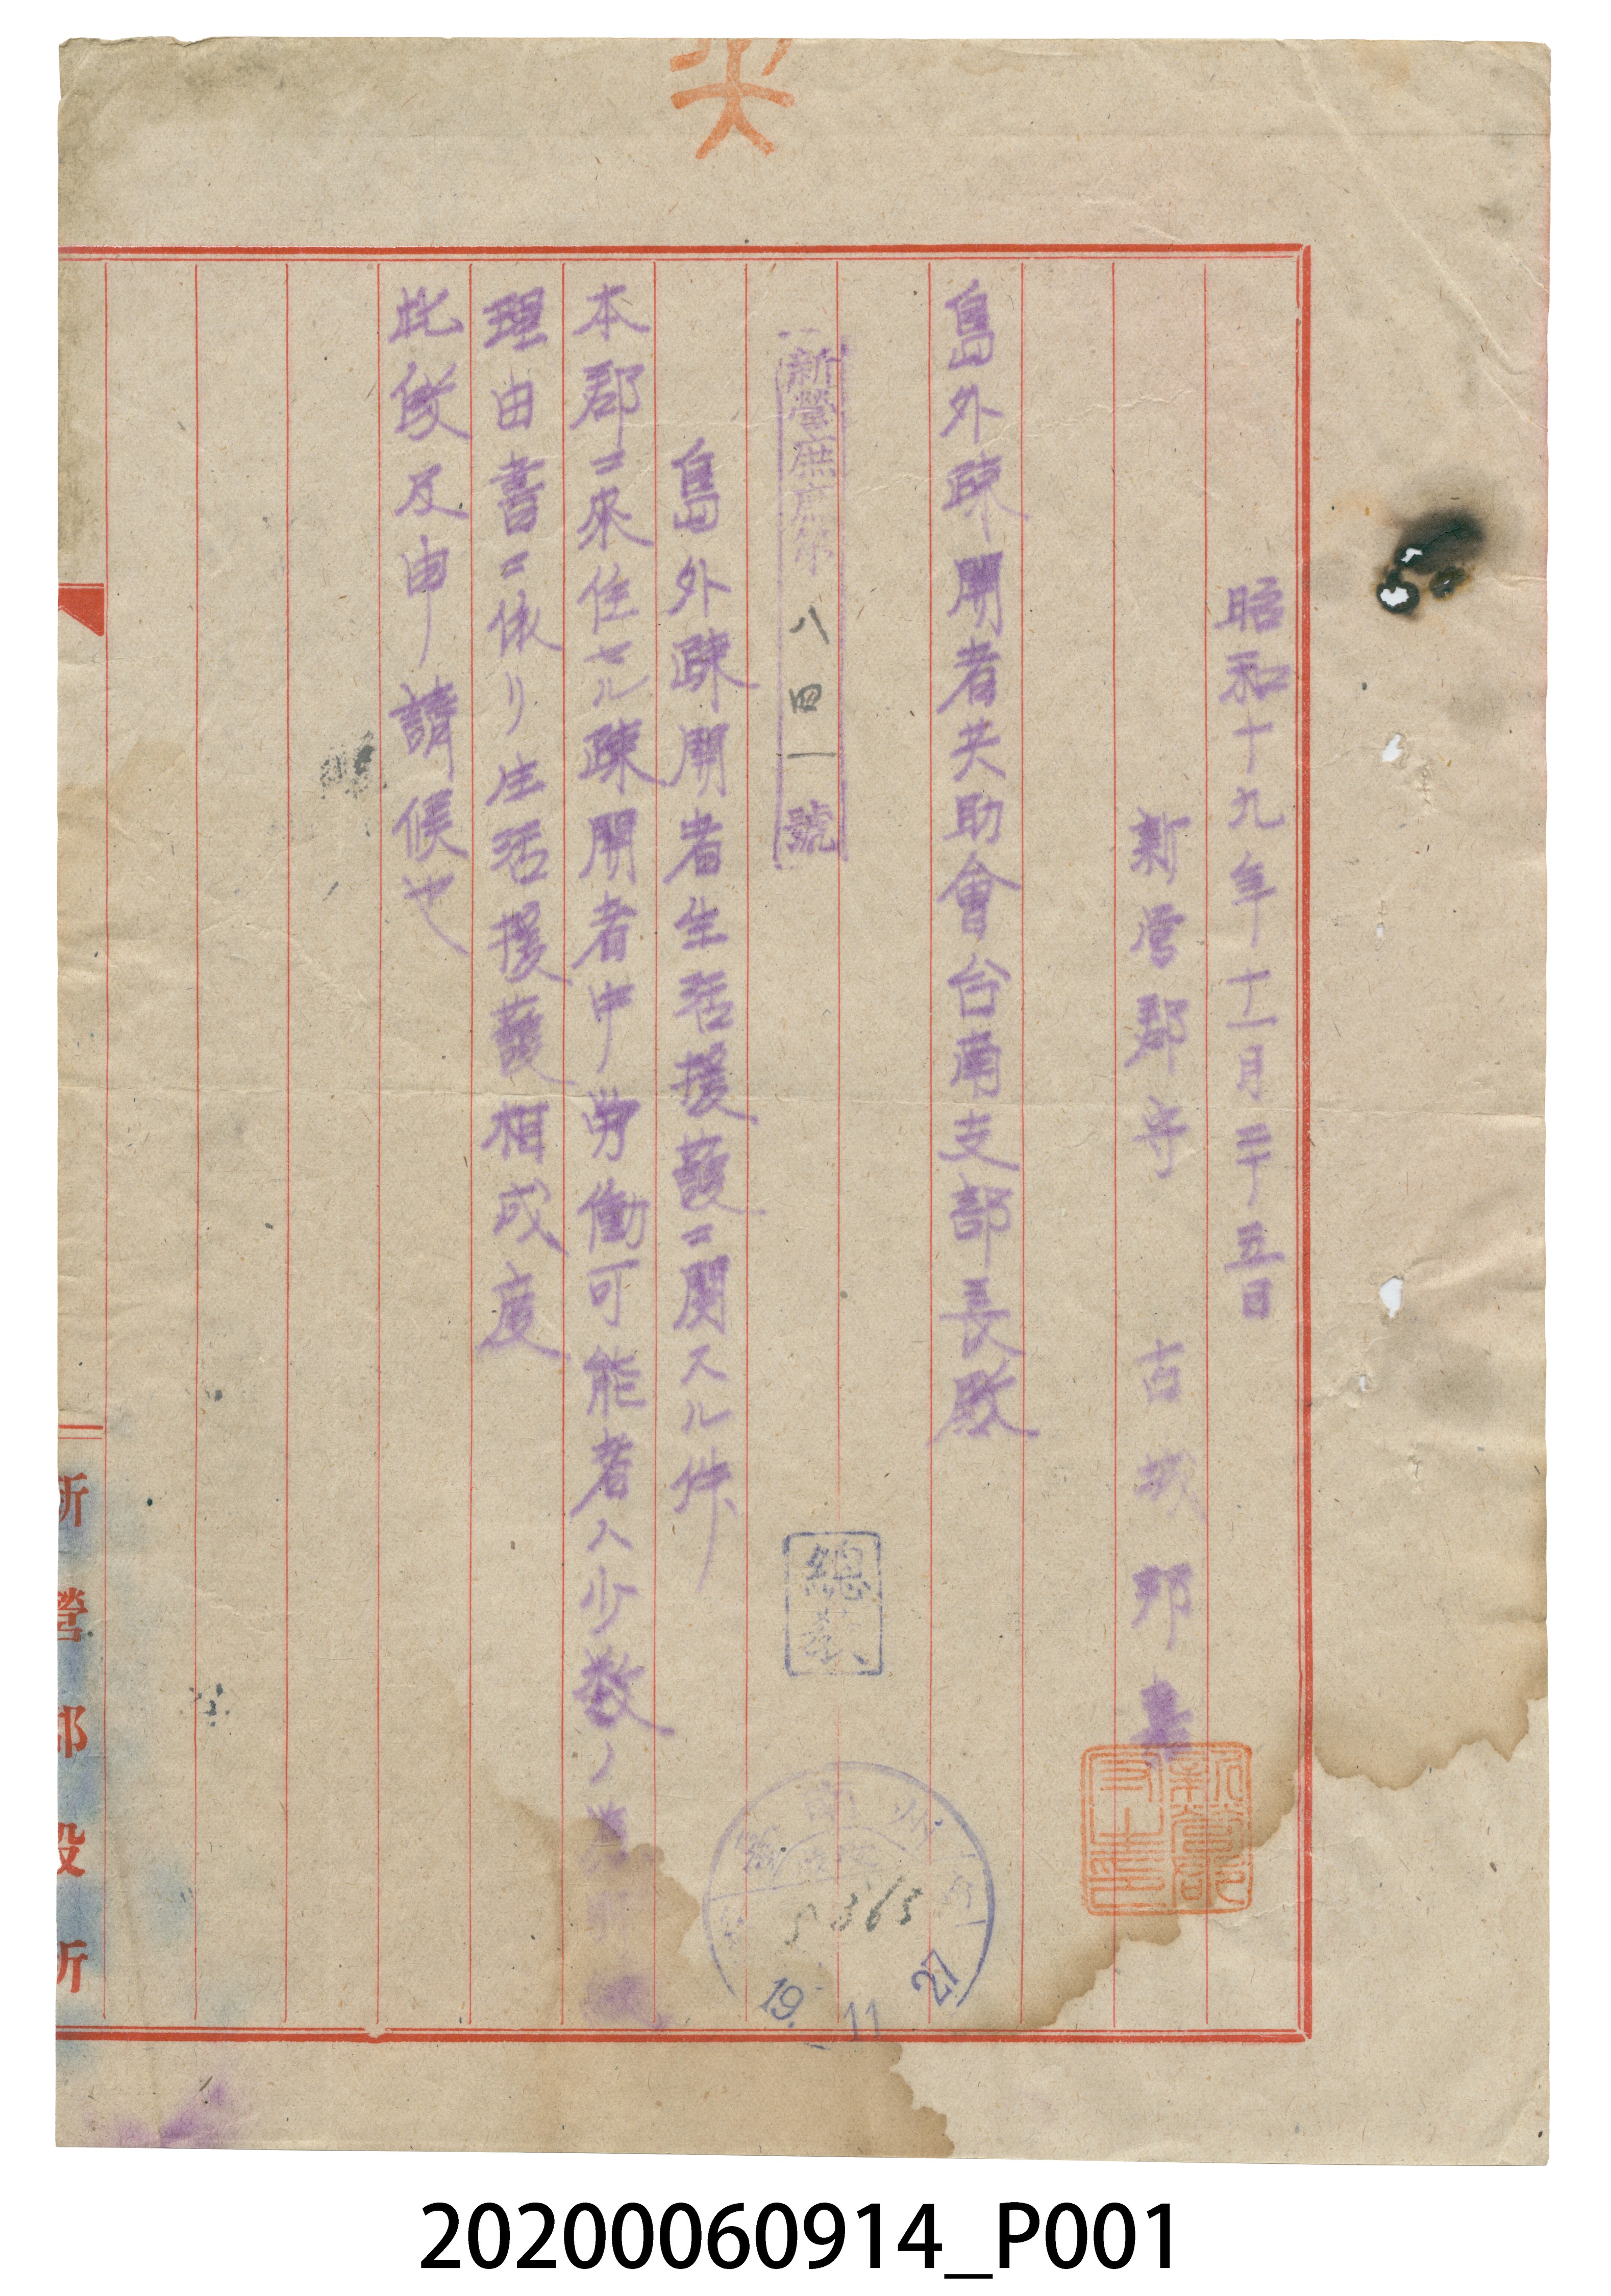 昭和十九年十一月二十五日
新営郡守 古城邦喜
島外疎開者共助會台南支部長殿
新營庶庶第八四一號
島外疎開者生活援護ニ関スル件
本郡ニ來住セル疎開者中労働可能者ハ少数ノ為
理由書ニ依リ生活援護相成度
此俊及申請候也
總務
19.11.27
5365
新營郡役所
20200060914_P001